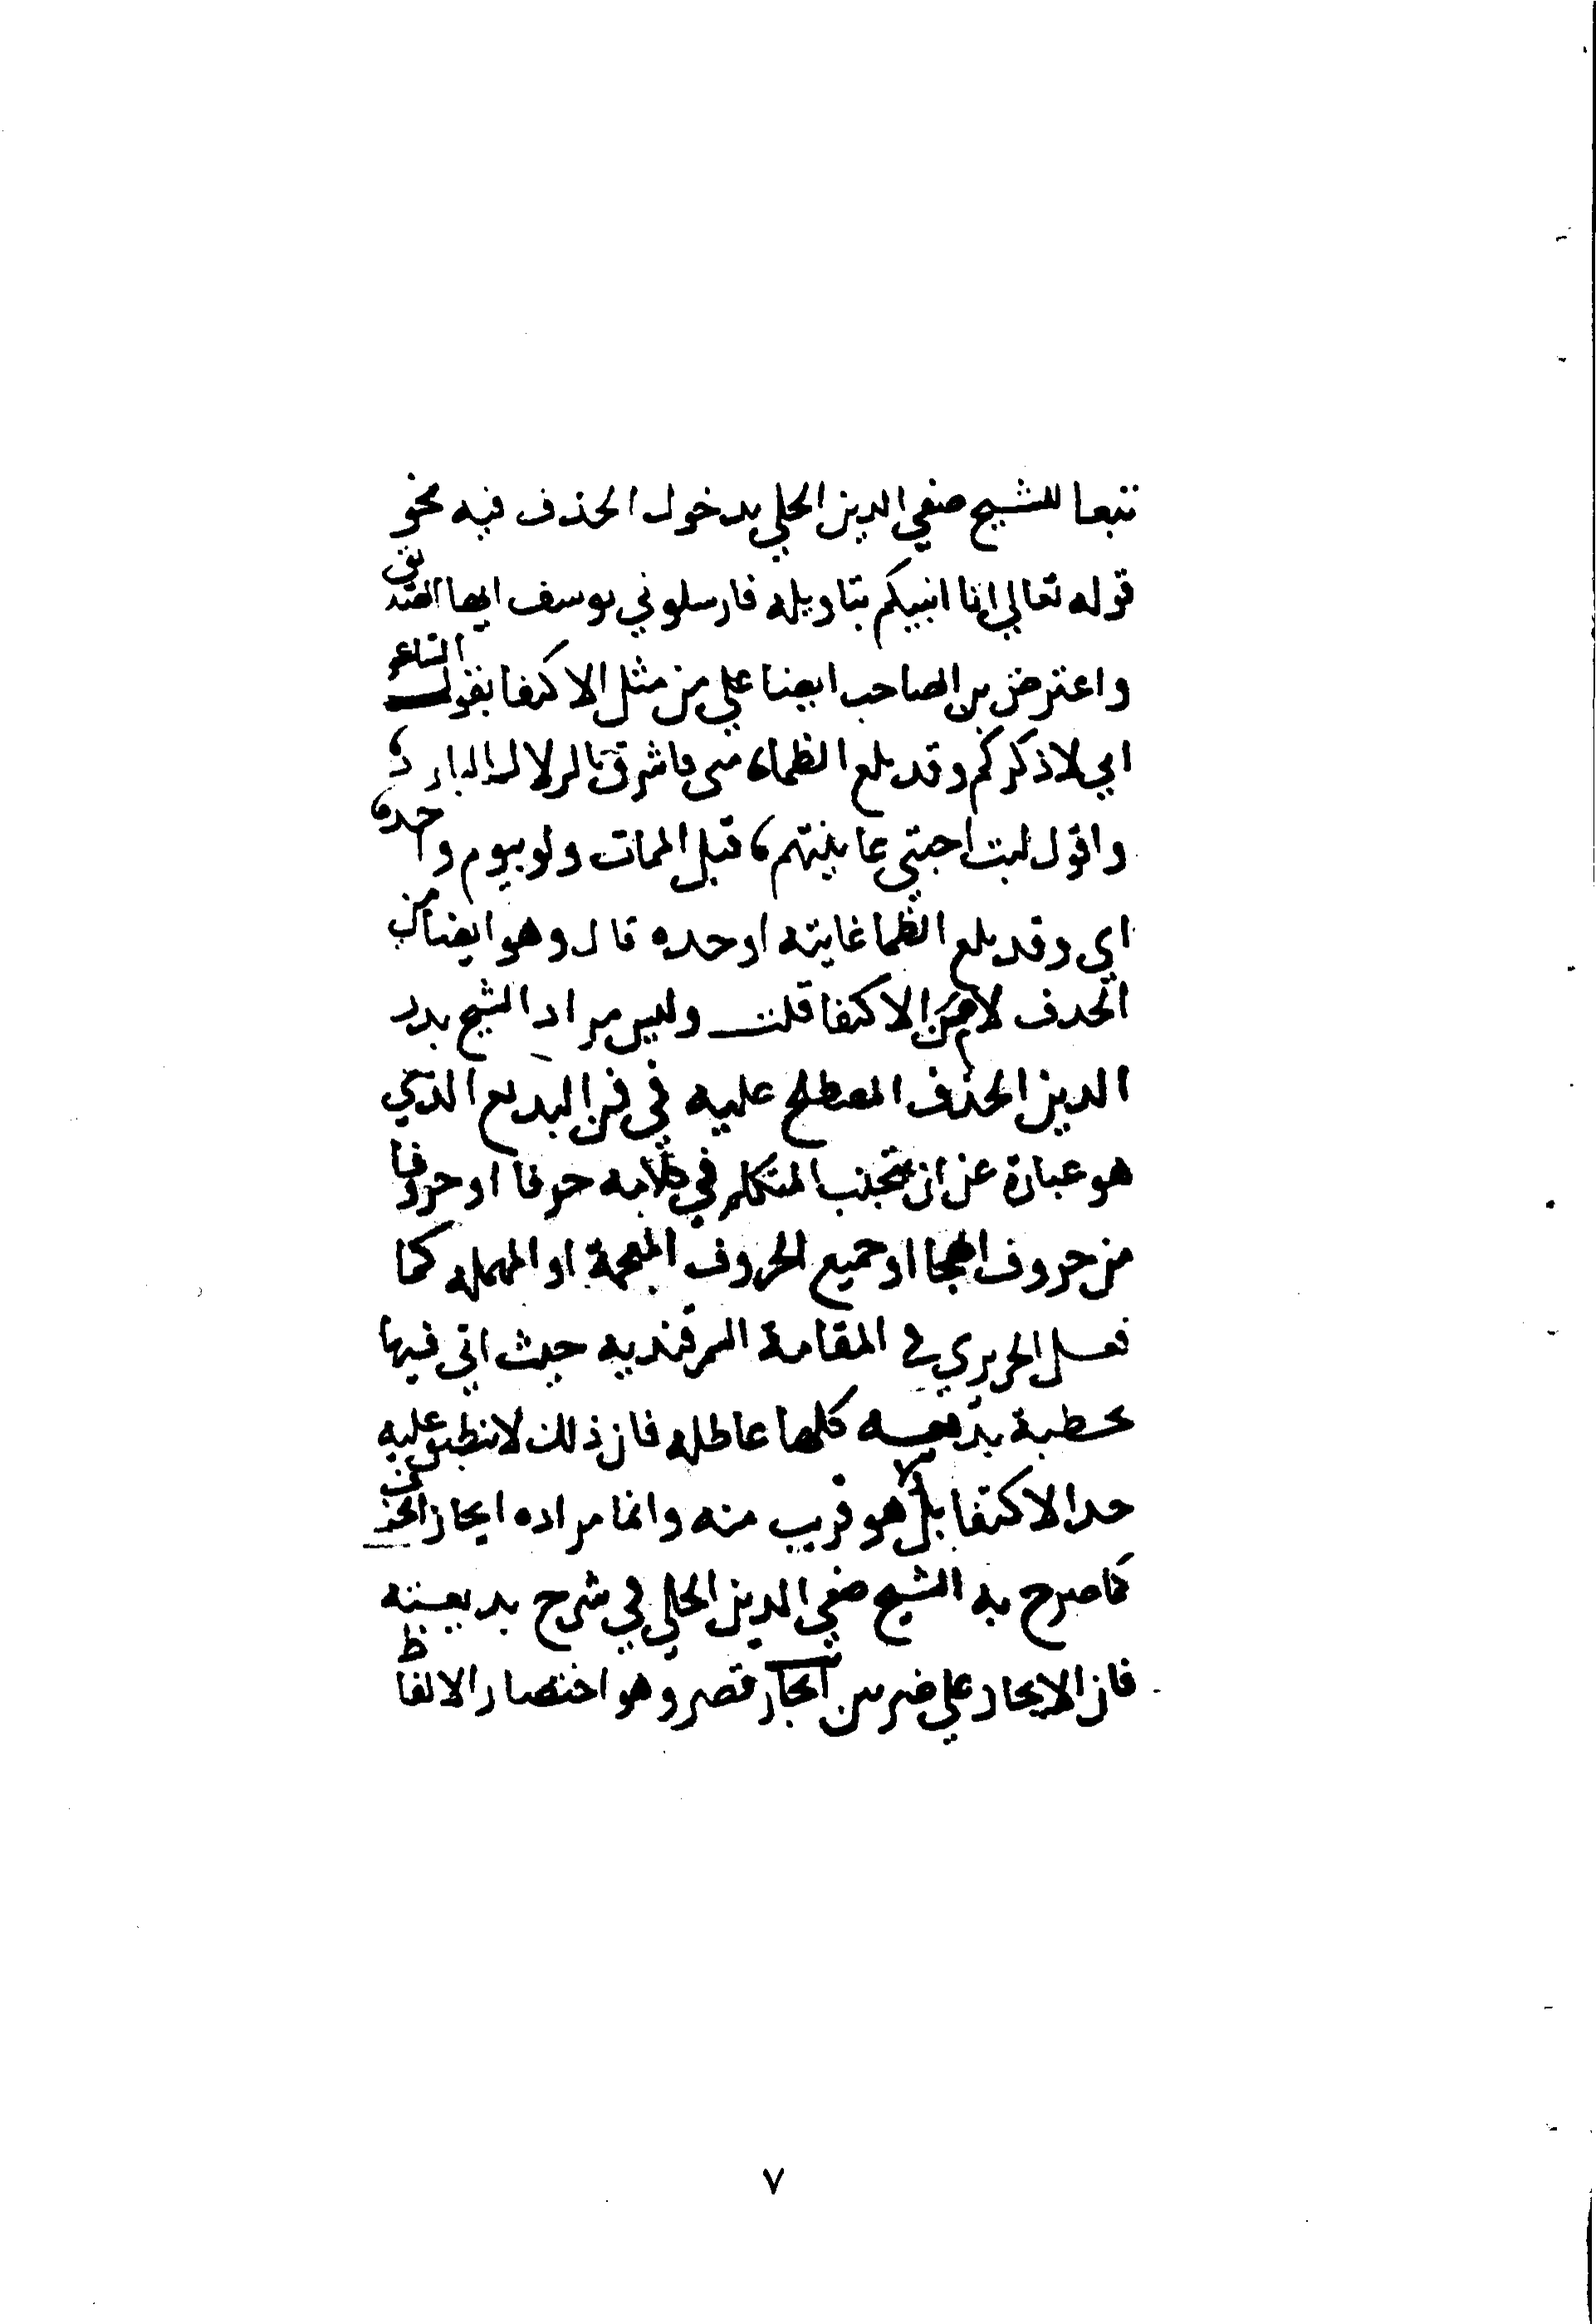 تبعا للشيخ صفي الدين الحلي بدخول الحذف فيه نحو
قوله تعالي انا انبيكم بتاويله فارسلوني يوسف ايها الصديق
واعترض بن الصاحب ايضا علي من مثل الاكتفا بقول الشاعر
اني لاذكركم وقد بلغ الظماء مني فاشرق بالزلال البارد
واقول ليت احبتي عاينتهم، قبل الممات ولو بيوم واحد
اي وقد بلغ الظما غايته او حده قال وهو ايضا من
الحذف لا من الاكتفا قلت وليس مراد الشيخ بدر
الدين الحذف المصطلح عليه في فن البديع الذي
هو عبارة عن ان يتجنب المتكلم في كلامه حرفا او حروفا
من حروف الهجا او جميع الحروف المعجمة او المهمله كما
فعل الحريري في المقامة السمرقنديه حيث اتي فيها
بخطبة بديعيه كلها عاطله فان ذلك لا ينطبق عليه
حد الاكتفا بل ولا هو قريب منه وانما مراده ايجاز الحذف
كما صرح به الشيخ صفي الدين الحلي في شرح بديعيته
فان الايجاز علي ضربين ايجاز قصر وهو اختصار الالفاظ
٧